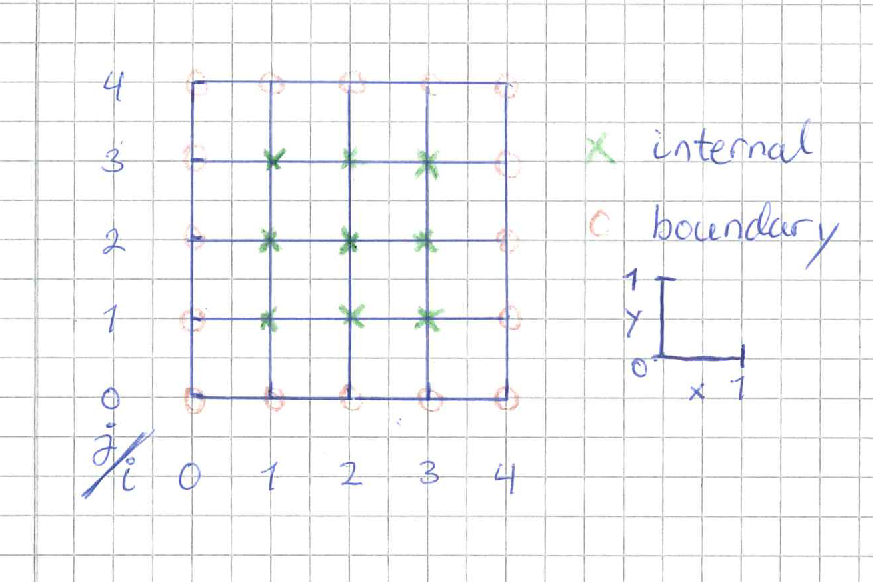 4
3
2
1
0
j/i 0 1 2 3 4
x internal
o boundary
1
y
0
x 1